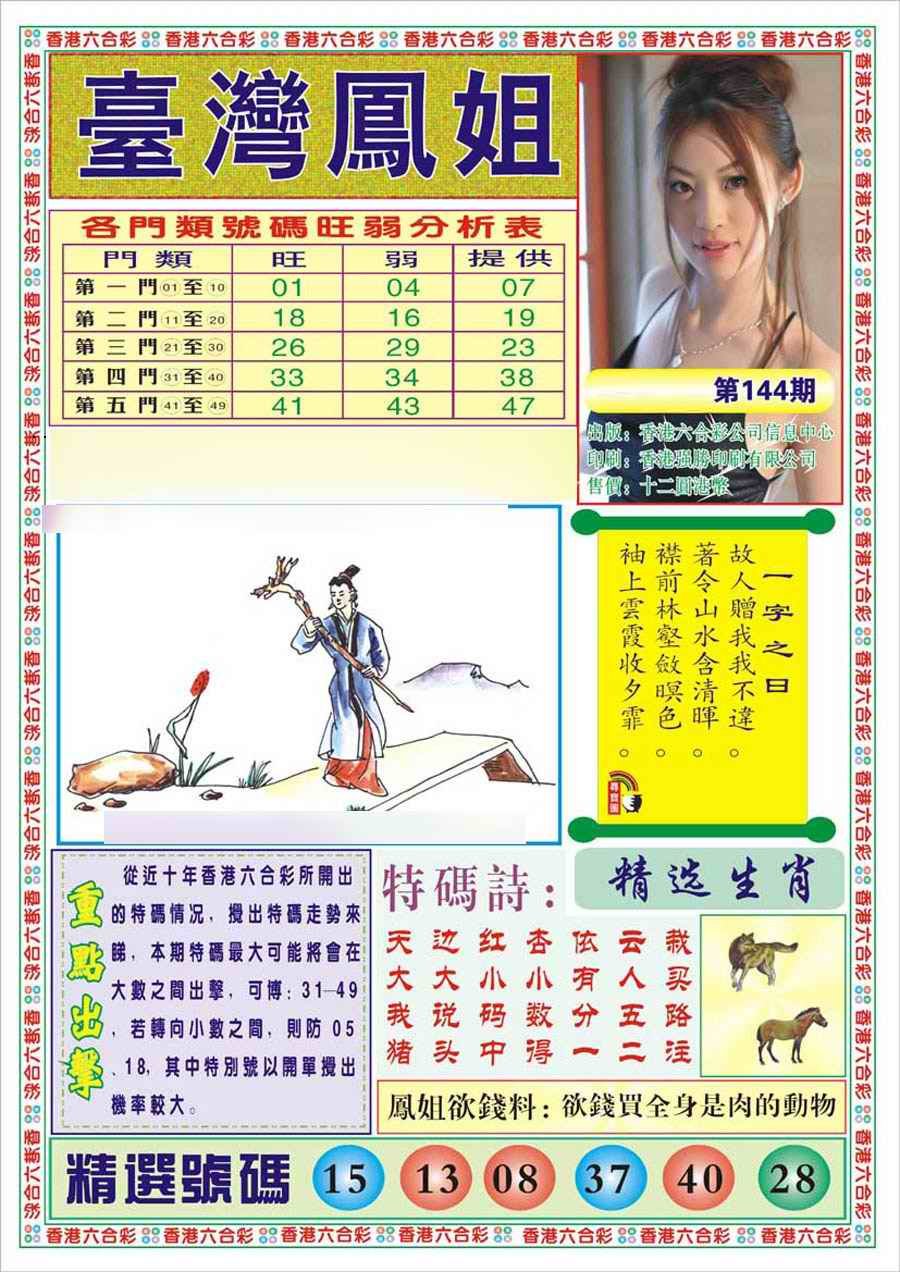 香港六合彩 香港六合彩 香港六合彩 香港六合彩 香港六合彩 香港六合彩 香港六合彩
臺灣鳳姐
各門類號碼旺弱分析表
門類 旺 弱 提供
第一門01至10 01 04 07
第二門11至20 18 16 19
第三門21至30 26 29 23
第四門31至40 33 34 38
第五門41至49 41 43 47
第144期
出版：香港六合彩公司信息中心
印刷：香港强勝印刷有限公司
售價：十二圓港幣
一字之曰
故人贈我我不違。
著令山水含清暉。
襟前林壑斂暝色。
袖上雲霞收夕霏。
重點出擊
從近十年香港六合彩所開出
的特碼情况，攪出特碼走勢來
睇，本期特碼最大可能將會在
大數之間出擊，可博：31—49
，若轉向小數之間，則防 05
、18，其中特別號以開單攪出
機率較大。
特碼詩：
天边红杏依云栽
大大小小有人买
我说码数分五路
猪头中得一二注
精选生肖
鳳姐欲錢料：欲錢買全身是肉的動物
精選號碼 15 13 08 37 40 28
香港六合彩 香港六合彩 香港六合彩 香港六合彩 香港六合彩 香港六合彩 香港六合彩